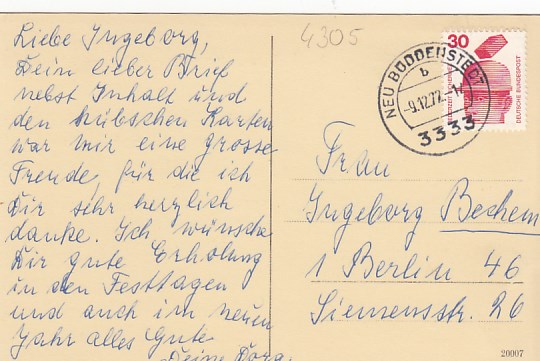 Liebe Ingeborg,
Dein lieber Brief
nebst Inhalt und
den hübschen Karten
war mir eine grosse
Freude, für die ich
Dir sehr herzlich
danke. Ich wünsche
Dir gute Erholung
in den Festtagen
und auch im neuen
Jahr alles Gute
Deine Dora.
4305
30
DEUTSCHE BUNDESPOST
NEU BODDENSTEDT
b
-9.12.72.-1
3333
Frau
Ingeborg Bechem
1 Berlin 46
Siemensstr. 26
20007